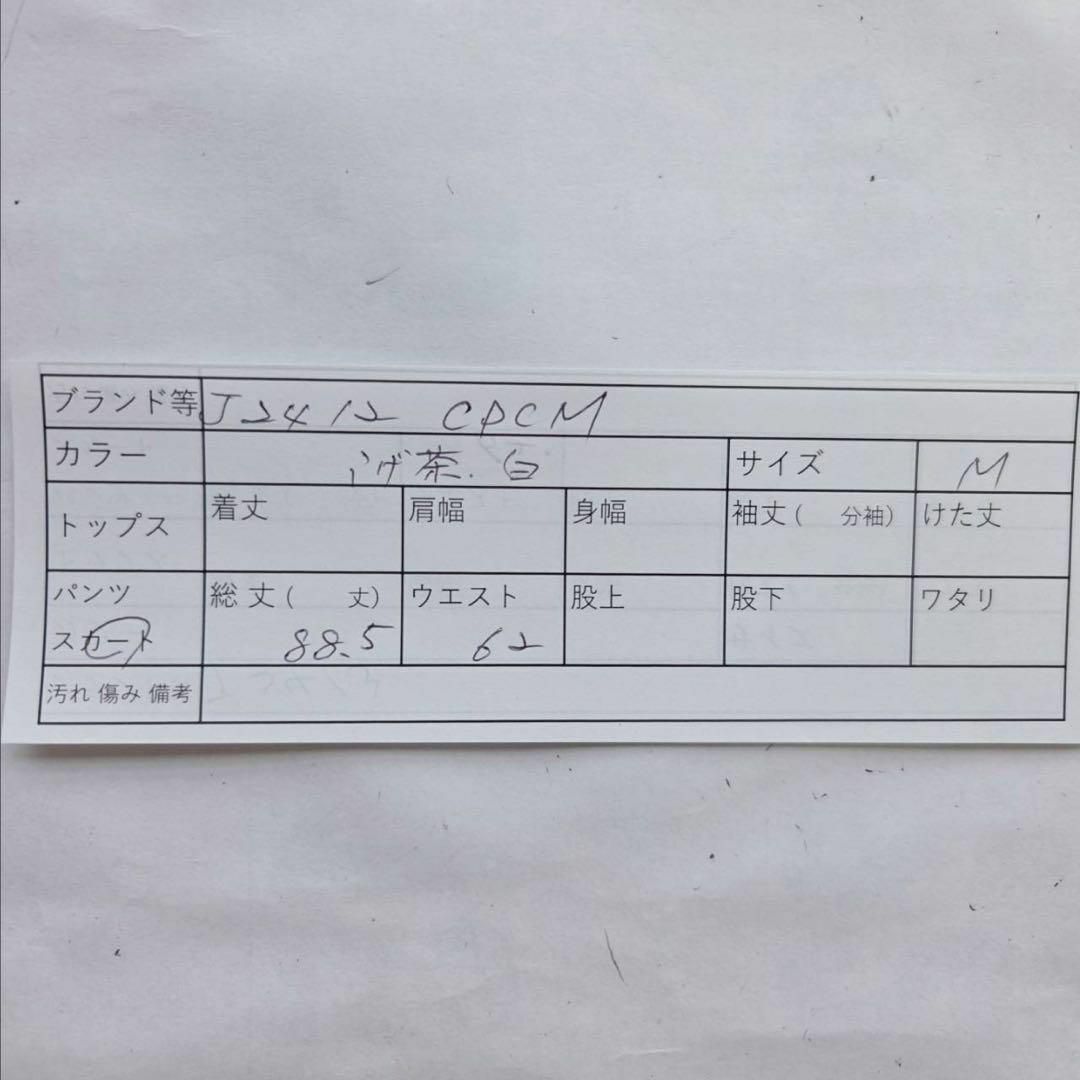 ブランド等 J2412 CPCM
カラー こげ茶.白 サイズ M
トップス 着丈 肩幅 身幅 袖丈( 分袖) けた丈
パンツ 総丈( 丈) ウエスト 股上 股下 ワタリ
スカート 88.5 62
汚れ 傷み 備考